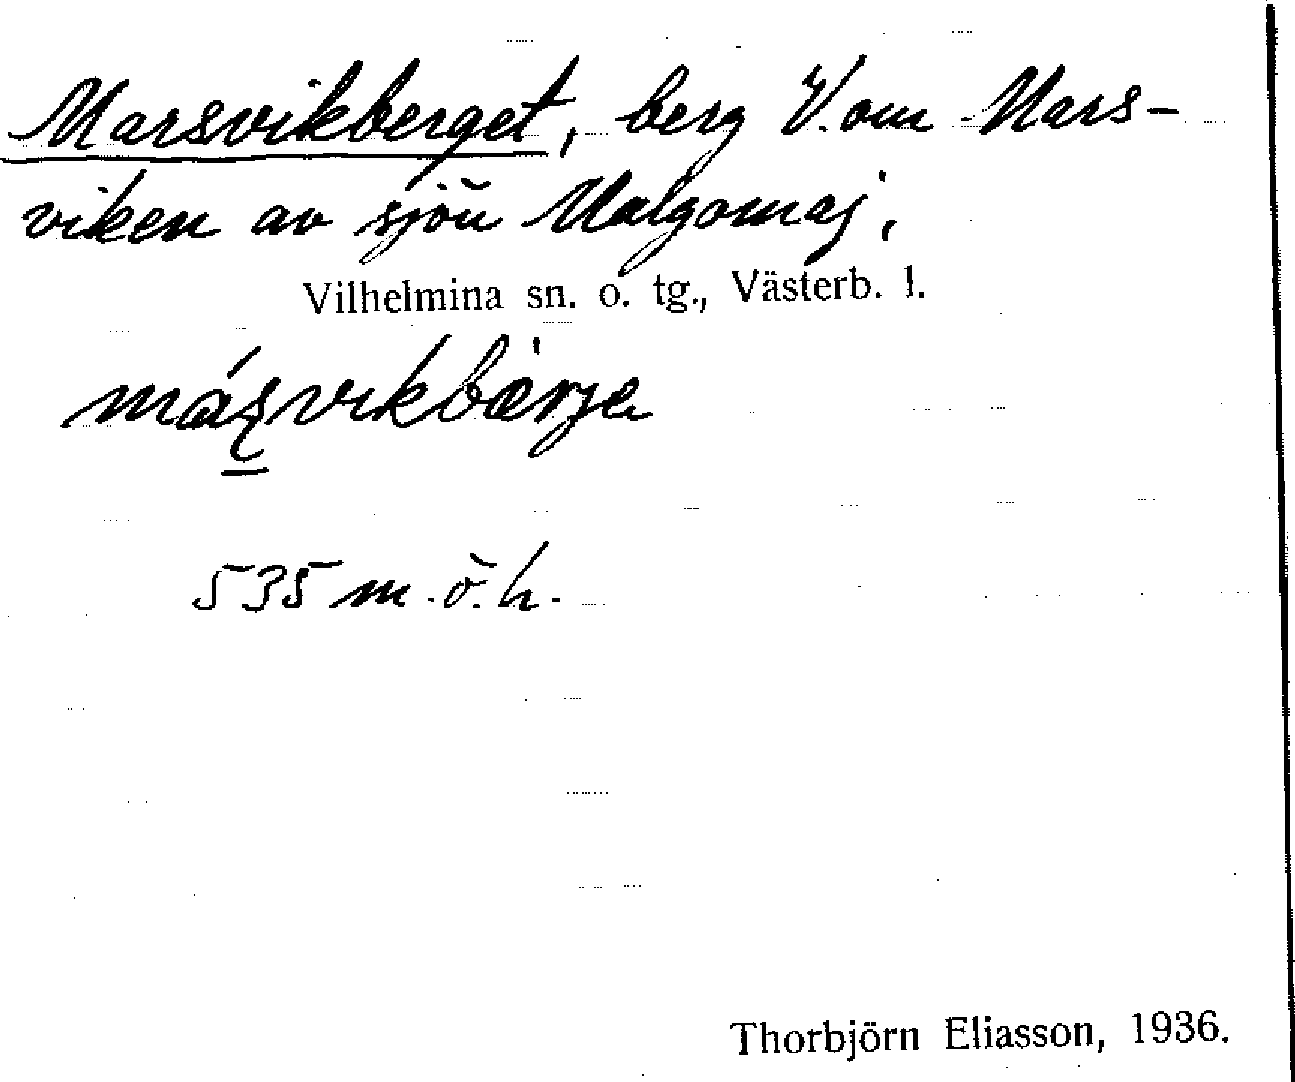 Marsvikberget, berg V. om Mars-
viken av sjön Malgomaj,
Vilhelmina sn. o. tg., Västerb. l.
máʂvikbàrje
535 m. ö. h.
Thorbjörn Eliasson, 1936.